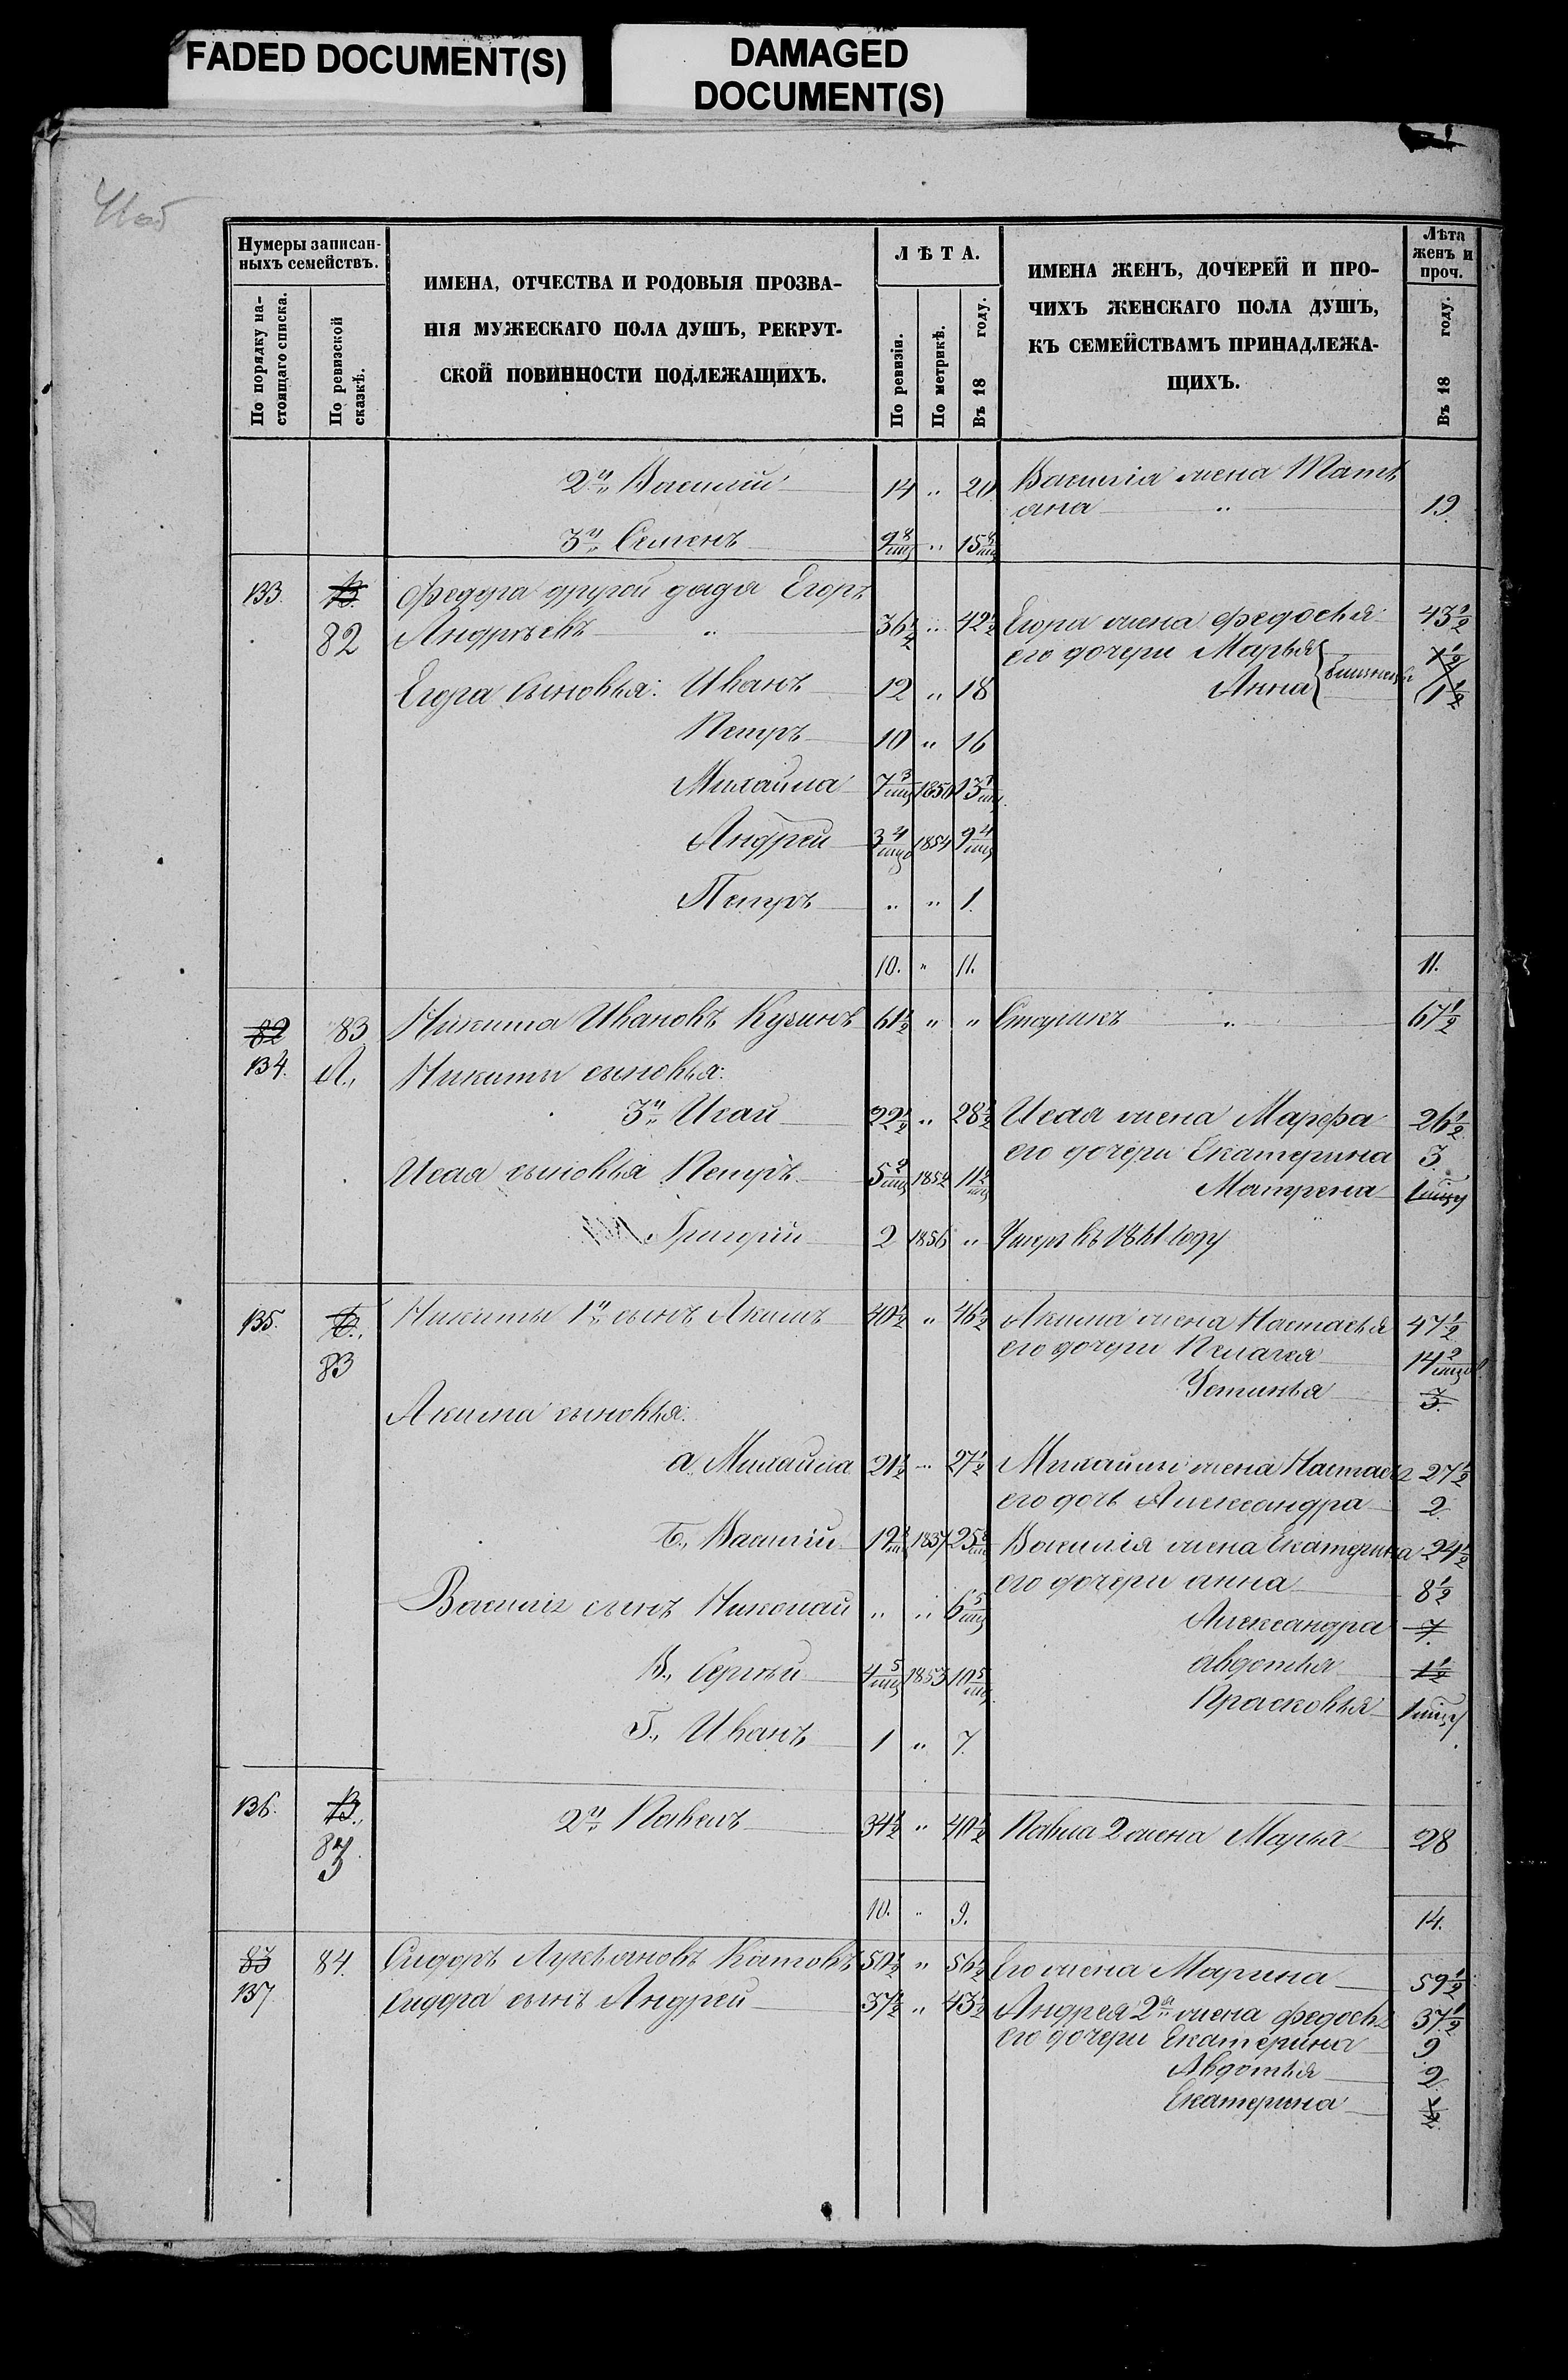 FADED DOCUMENT(S)
DAMAGED
DOCUMENT(S)
Нумеры записан-
ныхъ семействъ.
По порядку на-
стоящаго списка.
По ревизской
сказкѣ.
ИМЕНА, ОТЧЕСТВА И РОДОВЫЯ ПРОЗВА-
НІЯ МУЖЕСКАГО ПОЛА ДУШЪ, РЕКРУТ-
СКОЙ ПОВИННОСТИ ПОДЛЕЖАЩИХЪ.
ЛѢТА.
По ревизіи.
По метрикѣ.
Въ 18 году.
ИМЕНА ЖЕНЪ, ДОЧЕРЕЙ И ПРО-
ЧИХЪ ЖЕНСКАГО ПОЛА ДУШЪ,
КЪ СЕМЕЙСТВАМЪ ПРИНАДЛЕЖА-
ЩИХЪ.
Лѣта
женъ и
проч.
Въ 18 году.
2й Василій 14 " 20 Василія жена Татъ
яна " 19.
3й Семенъ 9 8/мц " 15 8/мц
133. В. Федора другой дядя Егоръ
82 Андреевъ " 36½ " 42½ Егора жена Федосья 43½
его дочери Марья
Егора сыновья: Иванъ 12 " 18 Анна близнецы 1½
Петръ 10 " 16
Михайла 7 3/мц 1850 13
Андрей 3 4/мц 1854 9 4/мц
Петръ " " 1.
10. " 11. 11.
82 83 Никита Ивановъ Кузинъ 61½ " " Старикъ " 67½
134. А., Никиты сыновья:
3й Исай 22½ " 28½ Исая жена Марфа 26½
его дочери Екатерина 3
Исая сыновья Петръ 5 1852 11 Матрена 1 мцъ
Григорій 2 1856 " Умеръ въ 1861 году
135. Б., Никиты 1й сынъ Акимъ 40½ " 46½ Акима жена Настасья 47½
83 его дочери Пелагея 14
Устинья 3.
Акима сыновья:
а. Михайла 21½ " 27½ Михайлы жена Настасья 27½
его дочь Александра 2
Б., Василій 1837 25 Василія жена Екатерина 24½
его дочери анна 8½
Василія сынъ Николай " " 6 5/мц
Александра 7.
В., Сергѣй 4 5/мц 1853 10 5/мц авдотья 1½
Прасковья 1 мцъ
Г., Иванъ 1 " 7.
136. В., 2й Павелъ 34½ " 40½ Павла 2 жена Марья 28
83
10. " 9. 14.
83 84. Сидоръ Лукьяновъ Катовъ 50½ " 56½ Его жена Марина 59½
137 Сидора сынъ Андрей 37½ " 43½ Андрея 2я жена Федосья 37½
его дочери Екатерина 9
Авдотья 2
Екатерина